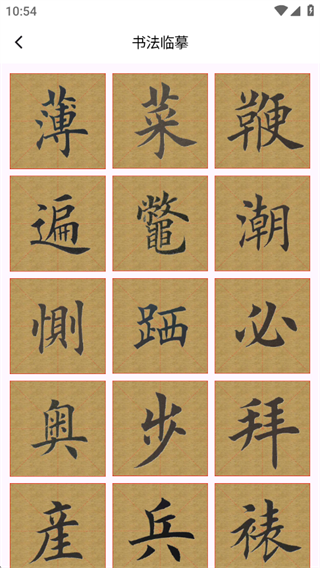 10:54
书法临摹
薄 菜 鞭
遍 鼈 潮
恻 跴 必
奥 步 拜
産 兵 裱